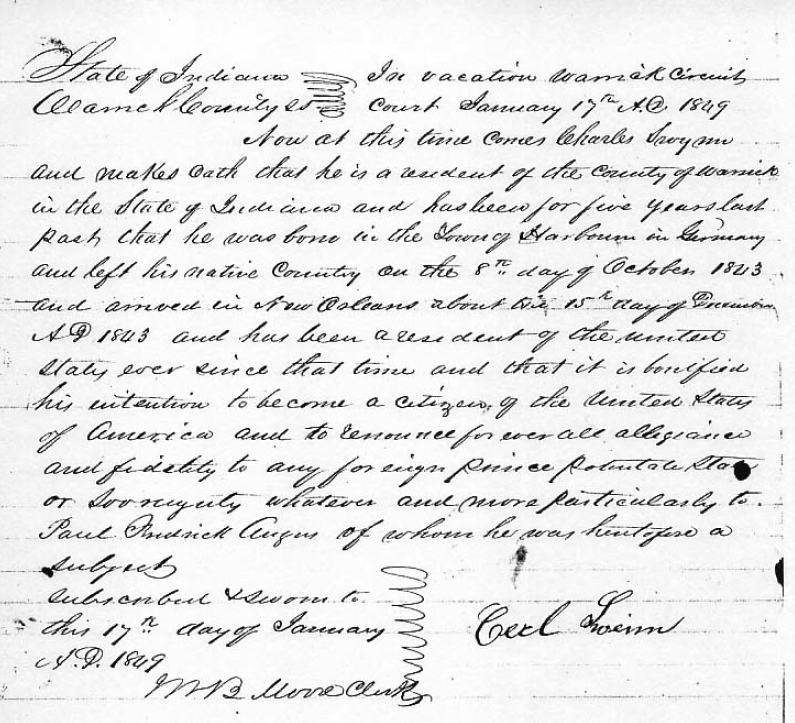 State of Indiana In vacation Warrick Circuit
Warrick County SS Court January 17th A.D. 1849
Now at this time comes Charles
and makes Oath that he is a resident of the County of Warrick
in the State of Indiana and has been for five years last
past that he was born in the Town of Harbourn in Germany
and left his native Country on the 8th day of October 1843
and arrived in New Orleans about the 15th day of December
A D 1843 and has been a resident of the United
States ever since that time and that it is bonified
his intention to become a citizen of the United States
of America and to renounce for ever all allegiance
and fidelity to any foreign prince potentate State
or sovreignty whatever and more particularly to
Paul Fredrick of whom he was heretofore a
subject
subscribed & sworn to
this 17th day of January
A.D. 1849
W B Moore Clerk